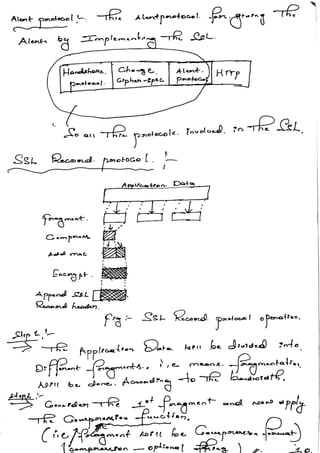 Alert protocol :- This Alertprotocal for giving The
Alerts by Implementing The SSL.
Handshake protocol. Change Cipher-spec Alert. protocol HTTP
So all This protocols. Involved. in The SSL,
SSL Record. protocol. :-
Application Data
fragment.
Compress
Add mac
Encrypt.
Append SSL
Record header.
fig :- SSL Record protocol operation.
Step 1 :-
The Application Data will be divided into
Different fragments., i,e means. fragmentation
will be done. According to The bandwidth.
Step2 :-
Consider The 1st fragment and now apply
The Compression function.
(i.e/ fragment will be Compression format)
(compression - optional thing)